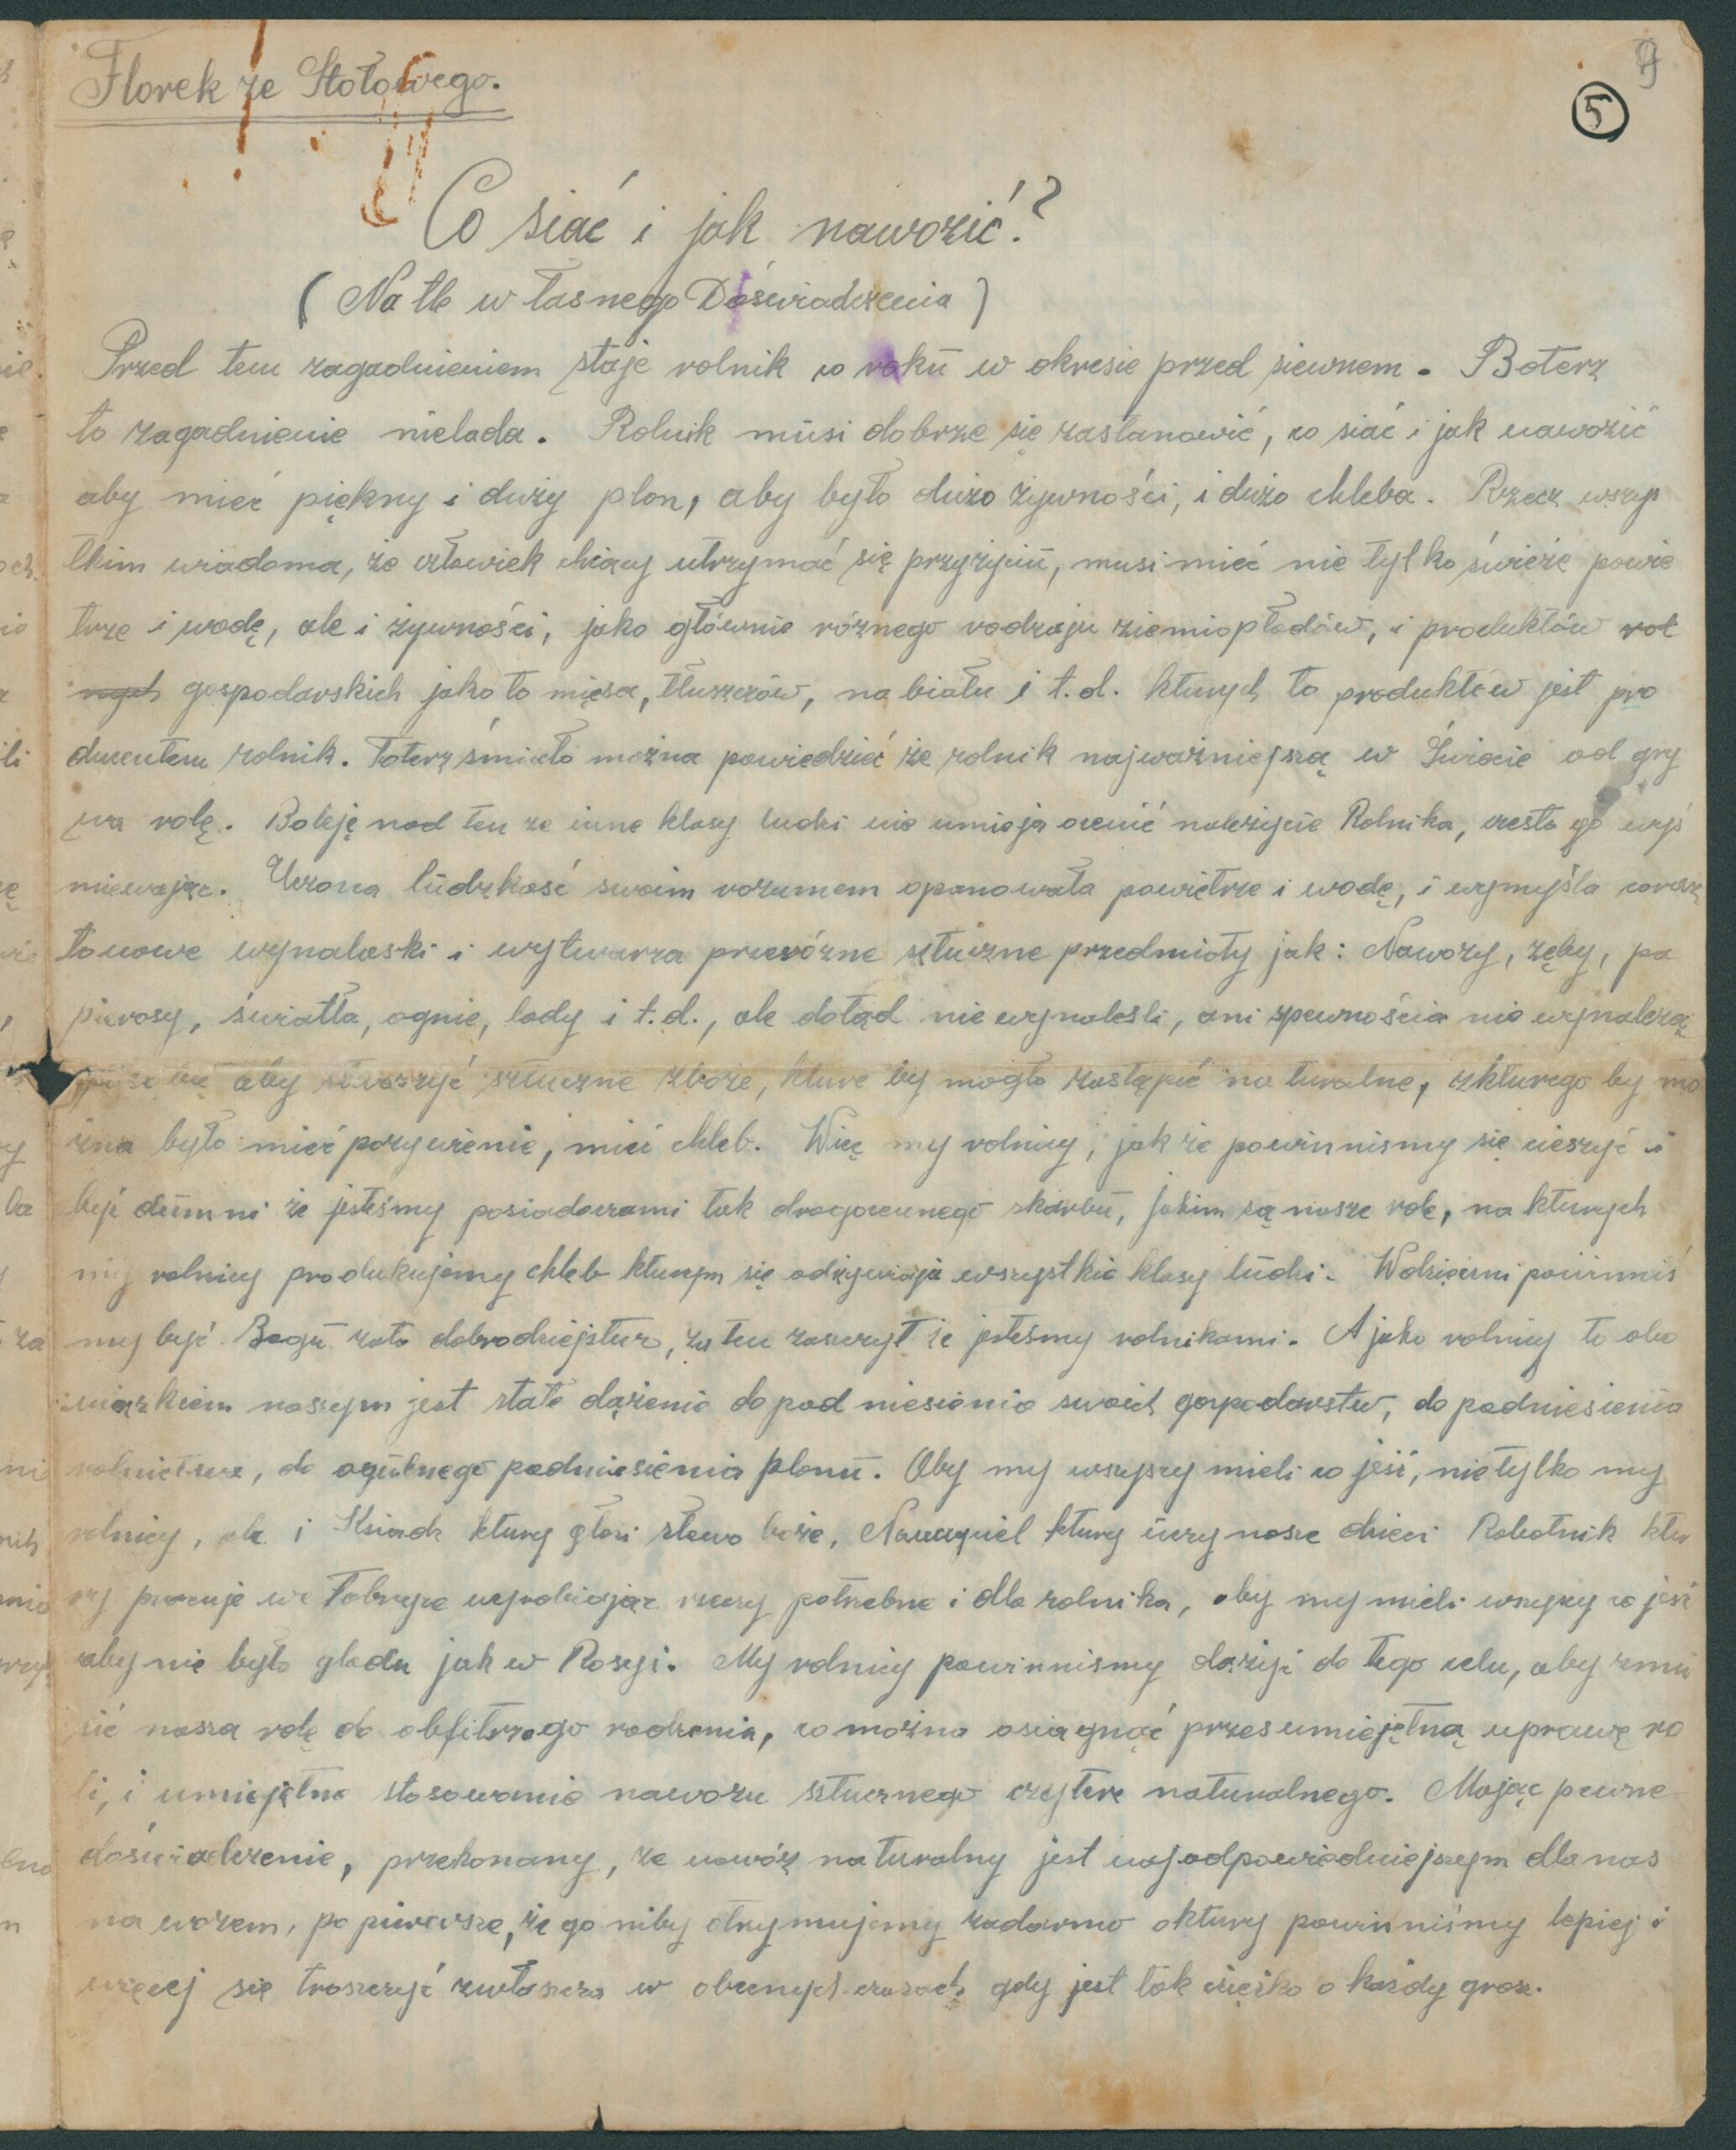 9
5
Florek ze Stołowego.
Co siać i jak nawozić?
(Na tle w łasnego Doświadczenia)
Przed tem zagadnieniem staje rolnik co roku w okresie przed siewnem. Boterz
to zagadnienie nielada. Rolnik musi dobrze się zastanowić, co siać i jak nawozić
aby mieć piękny i duży plon, aby było dużo żywności, i dużo chleba. Rzecz wszys
tkim wiadoma, że człowiek chcący utrzymać się przyżyciu, musi mieć nie tylko świeże powie
trze i wodę, ale i żywności, jako głównie różnego rodzaju ziemiopłodów, i produktów rol
nych gospodarskich jako to mięsa, tłuszczów, na biału i t.d. kturych to produktów jest pro
ducentem rolnik. Toterz śmiało można powiedzieć że rolnik najważniejszą w Świecie od gry
wa rolę. Boleję nad tem ze inne klasy ludzi nie umieja ocenić należycie Rolnika, czesto go wyś
miewając. Uczona ludzkość swoim rozumem opanowała powietrze i wodę, i wymyśla coraz
tonowe wynalaski i wytwarza przeróżne sztuczne przedmioty jak: Nawozy, zęby, pa
pierosy, światła, ognie, lody i t.d., ale dotąd nie wynaleśli, ani spewnościa nie wynalezą
aby stworzyć sztuczne zboże, kture by mogło zastąpić na turalne, zkturego by mo
żna było mieć pozywienie, mieć chleb. Więc my rolnicy, jak że powinnismy się cieszyć i
być dumni że jesteśmy posiadaczami tak drogocennego skarbu, jakim są nasze role, na kturych
my rolnicy produkujemy chleb kturym się odżywiaja wszystkie klasy ludzi. Wdzięczni powinniś
my być Bogu zato dobrodziejstwo, za ten zaszczyt że jesteśmy rolnikami. A jako rolnicy to obo
wiązkiem naszym jest stałe dążenie do pod niesienia swoich gospodarstw, do podniesienia
rolnictwa, do ogulnego podniesienia plonu. Aby my wszyscy mieli co jeść, nie tylko my
rolnicy, ale i Ksiadz ktury głosi słowo boże, Nauczyciel ktury uczy nasze dzieci Robotnik ktu
ry pracuje we Fabryce wyrabiając rzeczy potrzebne i dla rolnika, aby my mieli wszyscy co jeść
aby nie było głodu jak w Rosyi. My rolnicy powinnismy dązyć do tego celu, aby zmu
sić nasza rolę do obfitszego rodzenia, co można osiagnąć przes umiejętną uprawę ro
li, i umiejętne stosowanie nawozu sztucznego czyterz naturalnego. Mając pewne
doświadczenie, przekonany, ze nawóz na turalny jest najodpowiedniejszym dla nas
na wozem, po pierwsze, że go niby otrzymujemy zadarmo oktury powinniśmy lepiej i
więcej się troszczyć zwłaszcza w obecnych czasach gdy jest tak ciężko o każdy grosz.